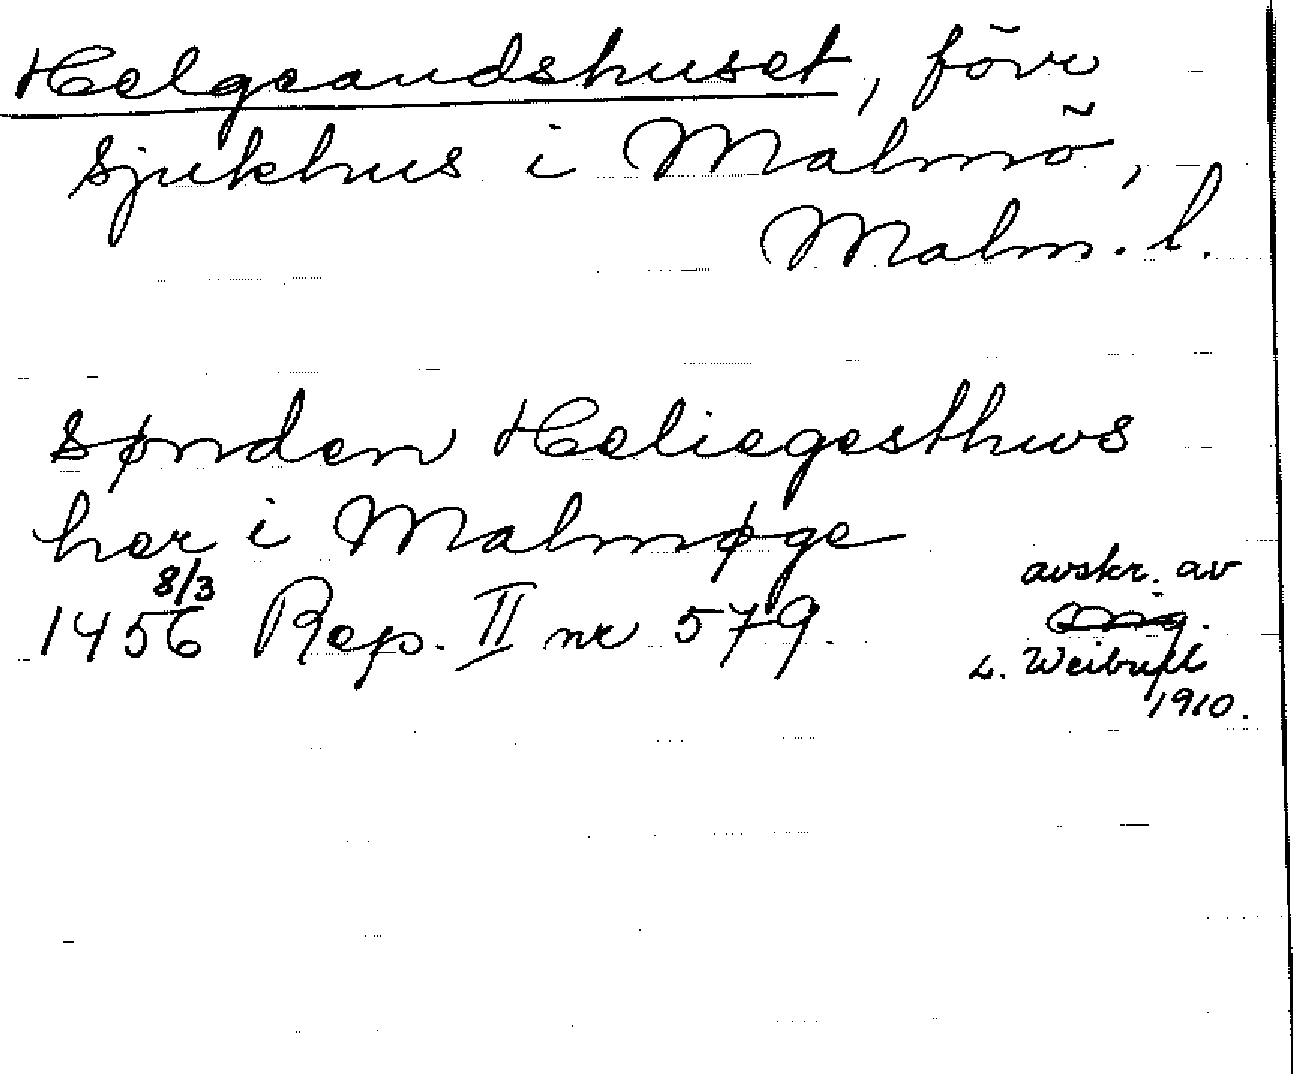 Helgeandshuset, förr
sjukhus i Malmö,
Malm. l.
sønden Heliegesthws
her i Malmøge
1456 8/3 Rep. II nr 579.
avskr. av
L. Weibull
1910.